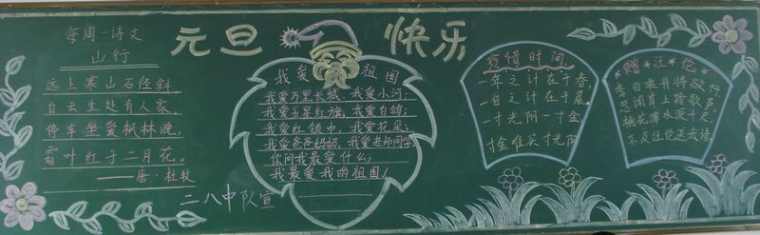 每周一诗文
山行
远上寒山石径斜
白云生处有人家
停车坐爱枫林晚,
霜叶红于二月花。
——唐·杜牧
元旦 快乐
我爱 祖国
我爱万里长城，我爱小河，
我爱五星红旗，我爱白鸽；
我爱红领巾，我爱花朵；
我爱爸爸妈妈，我爱老师同学
你问我最爱什么，
我最爱我的祖国！
二八中队宣
珍惜时间
一年之计在于春，
一日之计在于晨
一寸光阴一寸金
寸金难买寸光阴
赠汪伦
李白乘舟将欲行
忽闻岸上踏歌声
桃花潭水深千尺
不及汪伦送我情